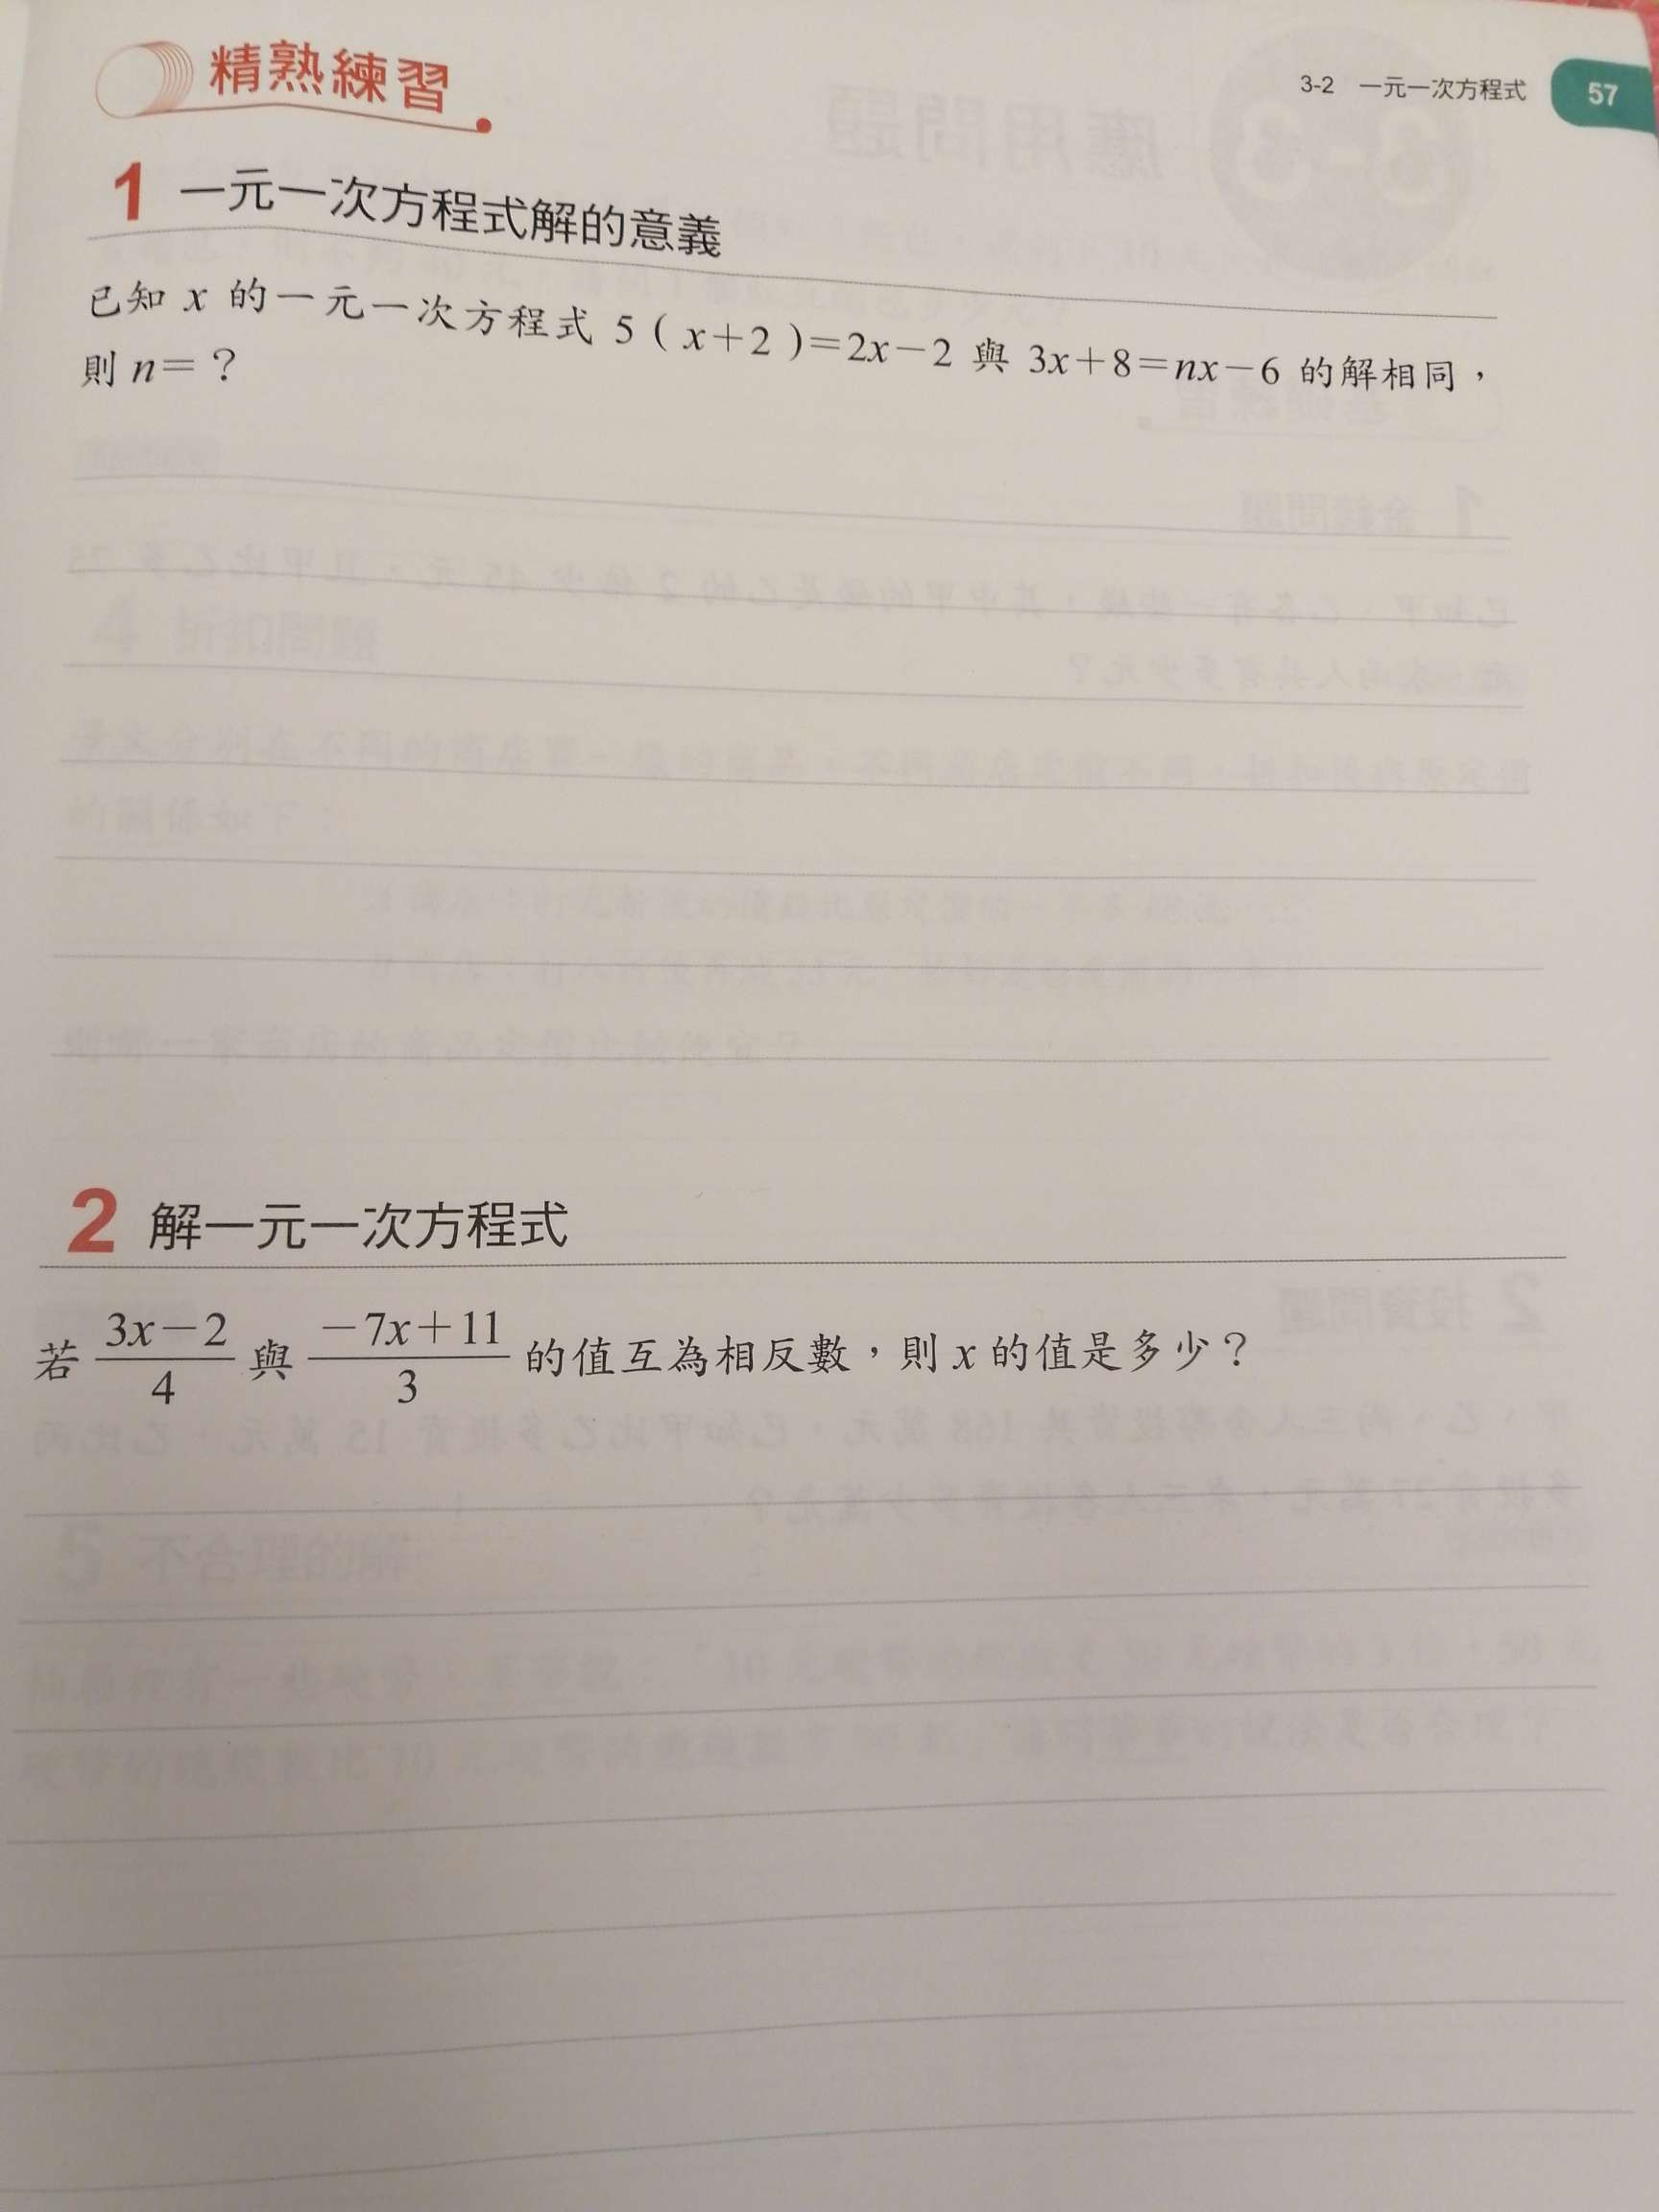 精熟練習
3-2 一元一次方程式 57
1 一元一次方程式解的意義
已知 x 的一元一次方程式 5 ( x+2 )=2x-2 與 3x+8=nx-6 的解相同，
則 n=？
2 解一元一次方程式
若 \frac{3x-2}{4} 與 \frac{-7x+11}{3} 的值互為相反數，則 x 的值是多少？